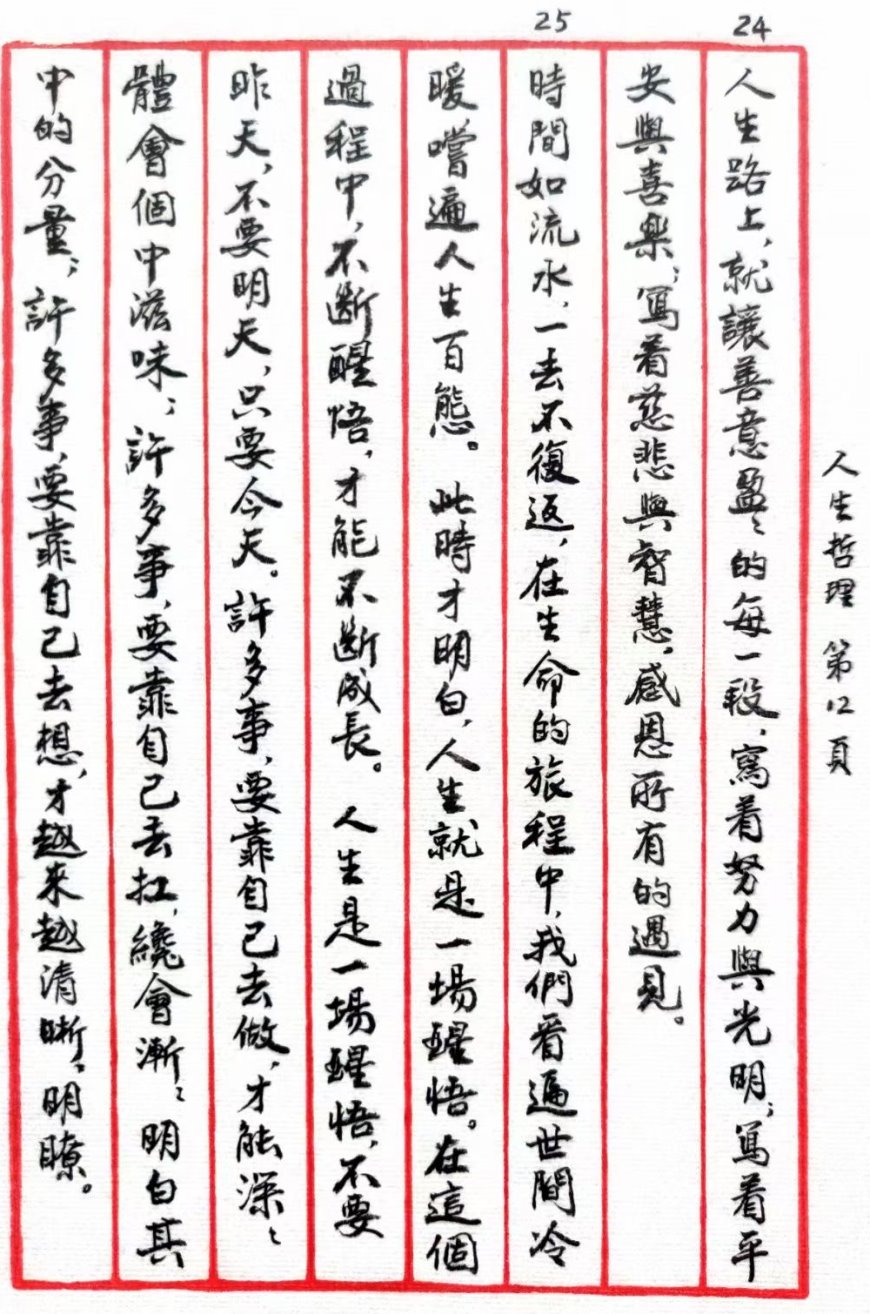 人生哲理 第12頁
24
人生路上，就讓善意盈〻的每一段，寫着努力與光明；寫着平
安與喜樂；寫着慈悲與智慧，感恩所有的遇見。
25
時間如流水，一去不復返，在生命的旅程中，我們看遍世間冷
暖嚐遍人生百態。此時才明白，人生就是一場醒悟。在這個
過程中，不斷醒悟，才能不斷成長。人生是一場醒悟，不要
昨天，不要明天，只要今天。許多事，要靠自己去做，才能深〻
體會個中滋味；許多事，要靠自己去扛，纔會漸〻明白其
中的分量；許多事，要靠自己去想，才越来越清晰，明瞭。